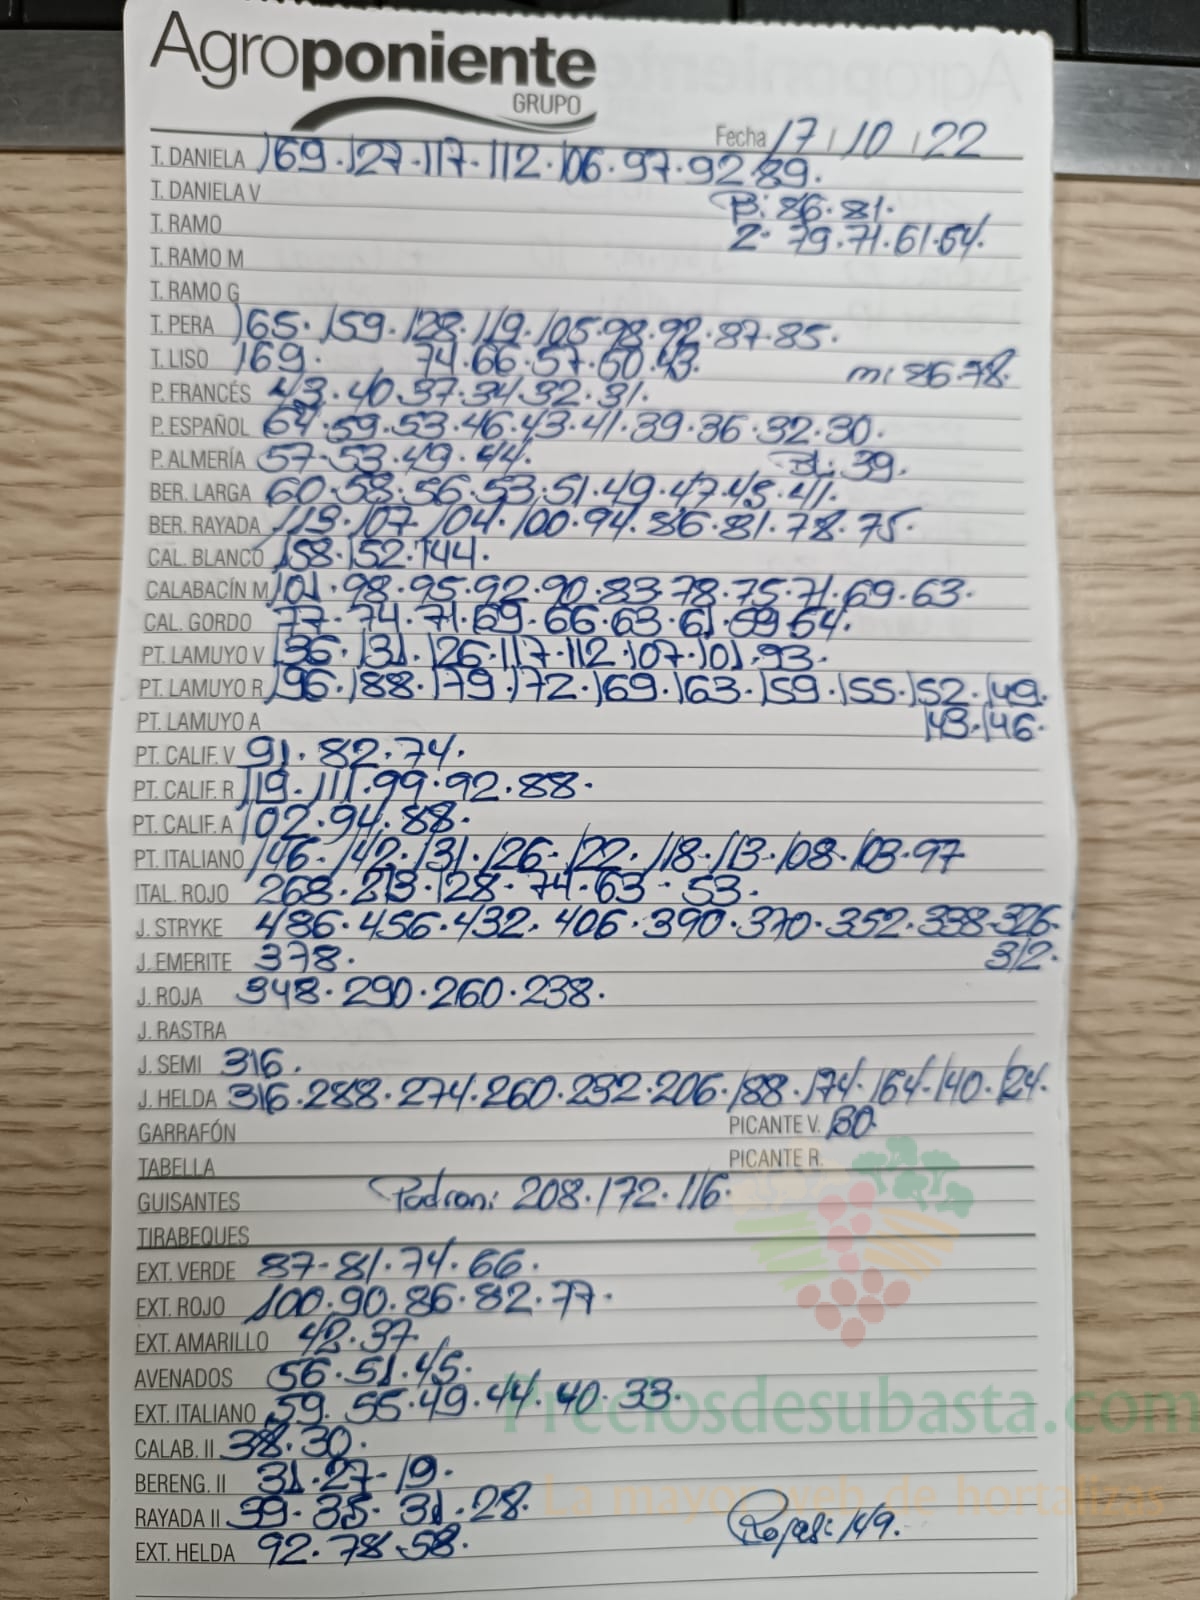 Agroponiente
GRUPO
Fecha 17 / 10 / 22
T. DANIELA 169·127·117·112·106·97·92·89.
T. DANIELA V B: 86·81.
T. RAMO 2· 79·71·61·54.
T. RAMO M
T. RAMO G
T. PERA 165·159·128·119·105·98·92·87·85.
T. LISO 169. 74·66·57·50·43. m: 86·78.
P. FRANCÉS 43·40·37·34·32·31.
P. ESPAÑOL 64·59·53·46·43·41·39·36·32·30.
P. ALMERÍA 57·53·49·44. BL: 39.
BER. LARGA 60·58·56·53·51·49·47·45·41.
BER. RAYADA 113·107·104·100·94·86·81·78·75.
CAL. BLANCO 158·152·144.
CALABACÍN M 101·98·95·92·90·83·78·75·71·69·63.
CAL. GORDO 77·74·71·69·66·63·61·59·54.
PT. LAMUYO V 136·131·126·117·112·107·101·93.
PT. LAMUYO R 196·188·179·172·169·163·159·155·152·149.
PT. LAMUYO A 143·146.
PT. CALIF. V 91·82·74.
PT. CALIF. R 119·111·99·92·88.
PT. CALIF. A 102·94·88.
PT. ITALIANO 146·142·131·126·122·118·113·108·103·97
ITAL. ROJO 268·213·128·74·63·53.
J. STRYKE 486·456·432·406·390·370·352·338·326·
J. EMERITE 378. 312.
J. ROJA 348·290·260·238.
J. RASTRA
J. SEMI 316.
J. HELDA 316·288·274·260·232·206·188·174·164·140·124.
GARRAFÓN PICANTE V. 130.
TABELLA PICANTE R.
GUISANTES Padron: 208·172·116.
TIRABEQUES
EXT. VERDE 87·81·74·66.
EXT. ROJO 100·90·86·82·77.
EXT. AMARILLO 42·37
AVENADOS 56·51·45.
EXT. ITALIANO 59·55·49·44·40·33.
Preciosdesubasta.com
CALAB. II 38·30.
BERENG. II 31·27·19.
La mayor web de hortalizas
RAYADA II 39·35·31·28.
Rojas: 149.
EXT. HELDA 92·78·58.